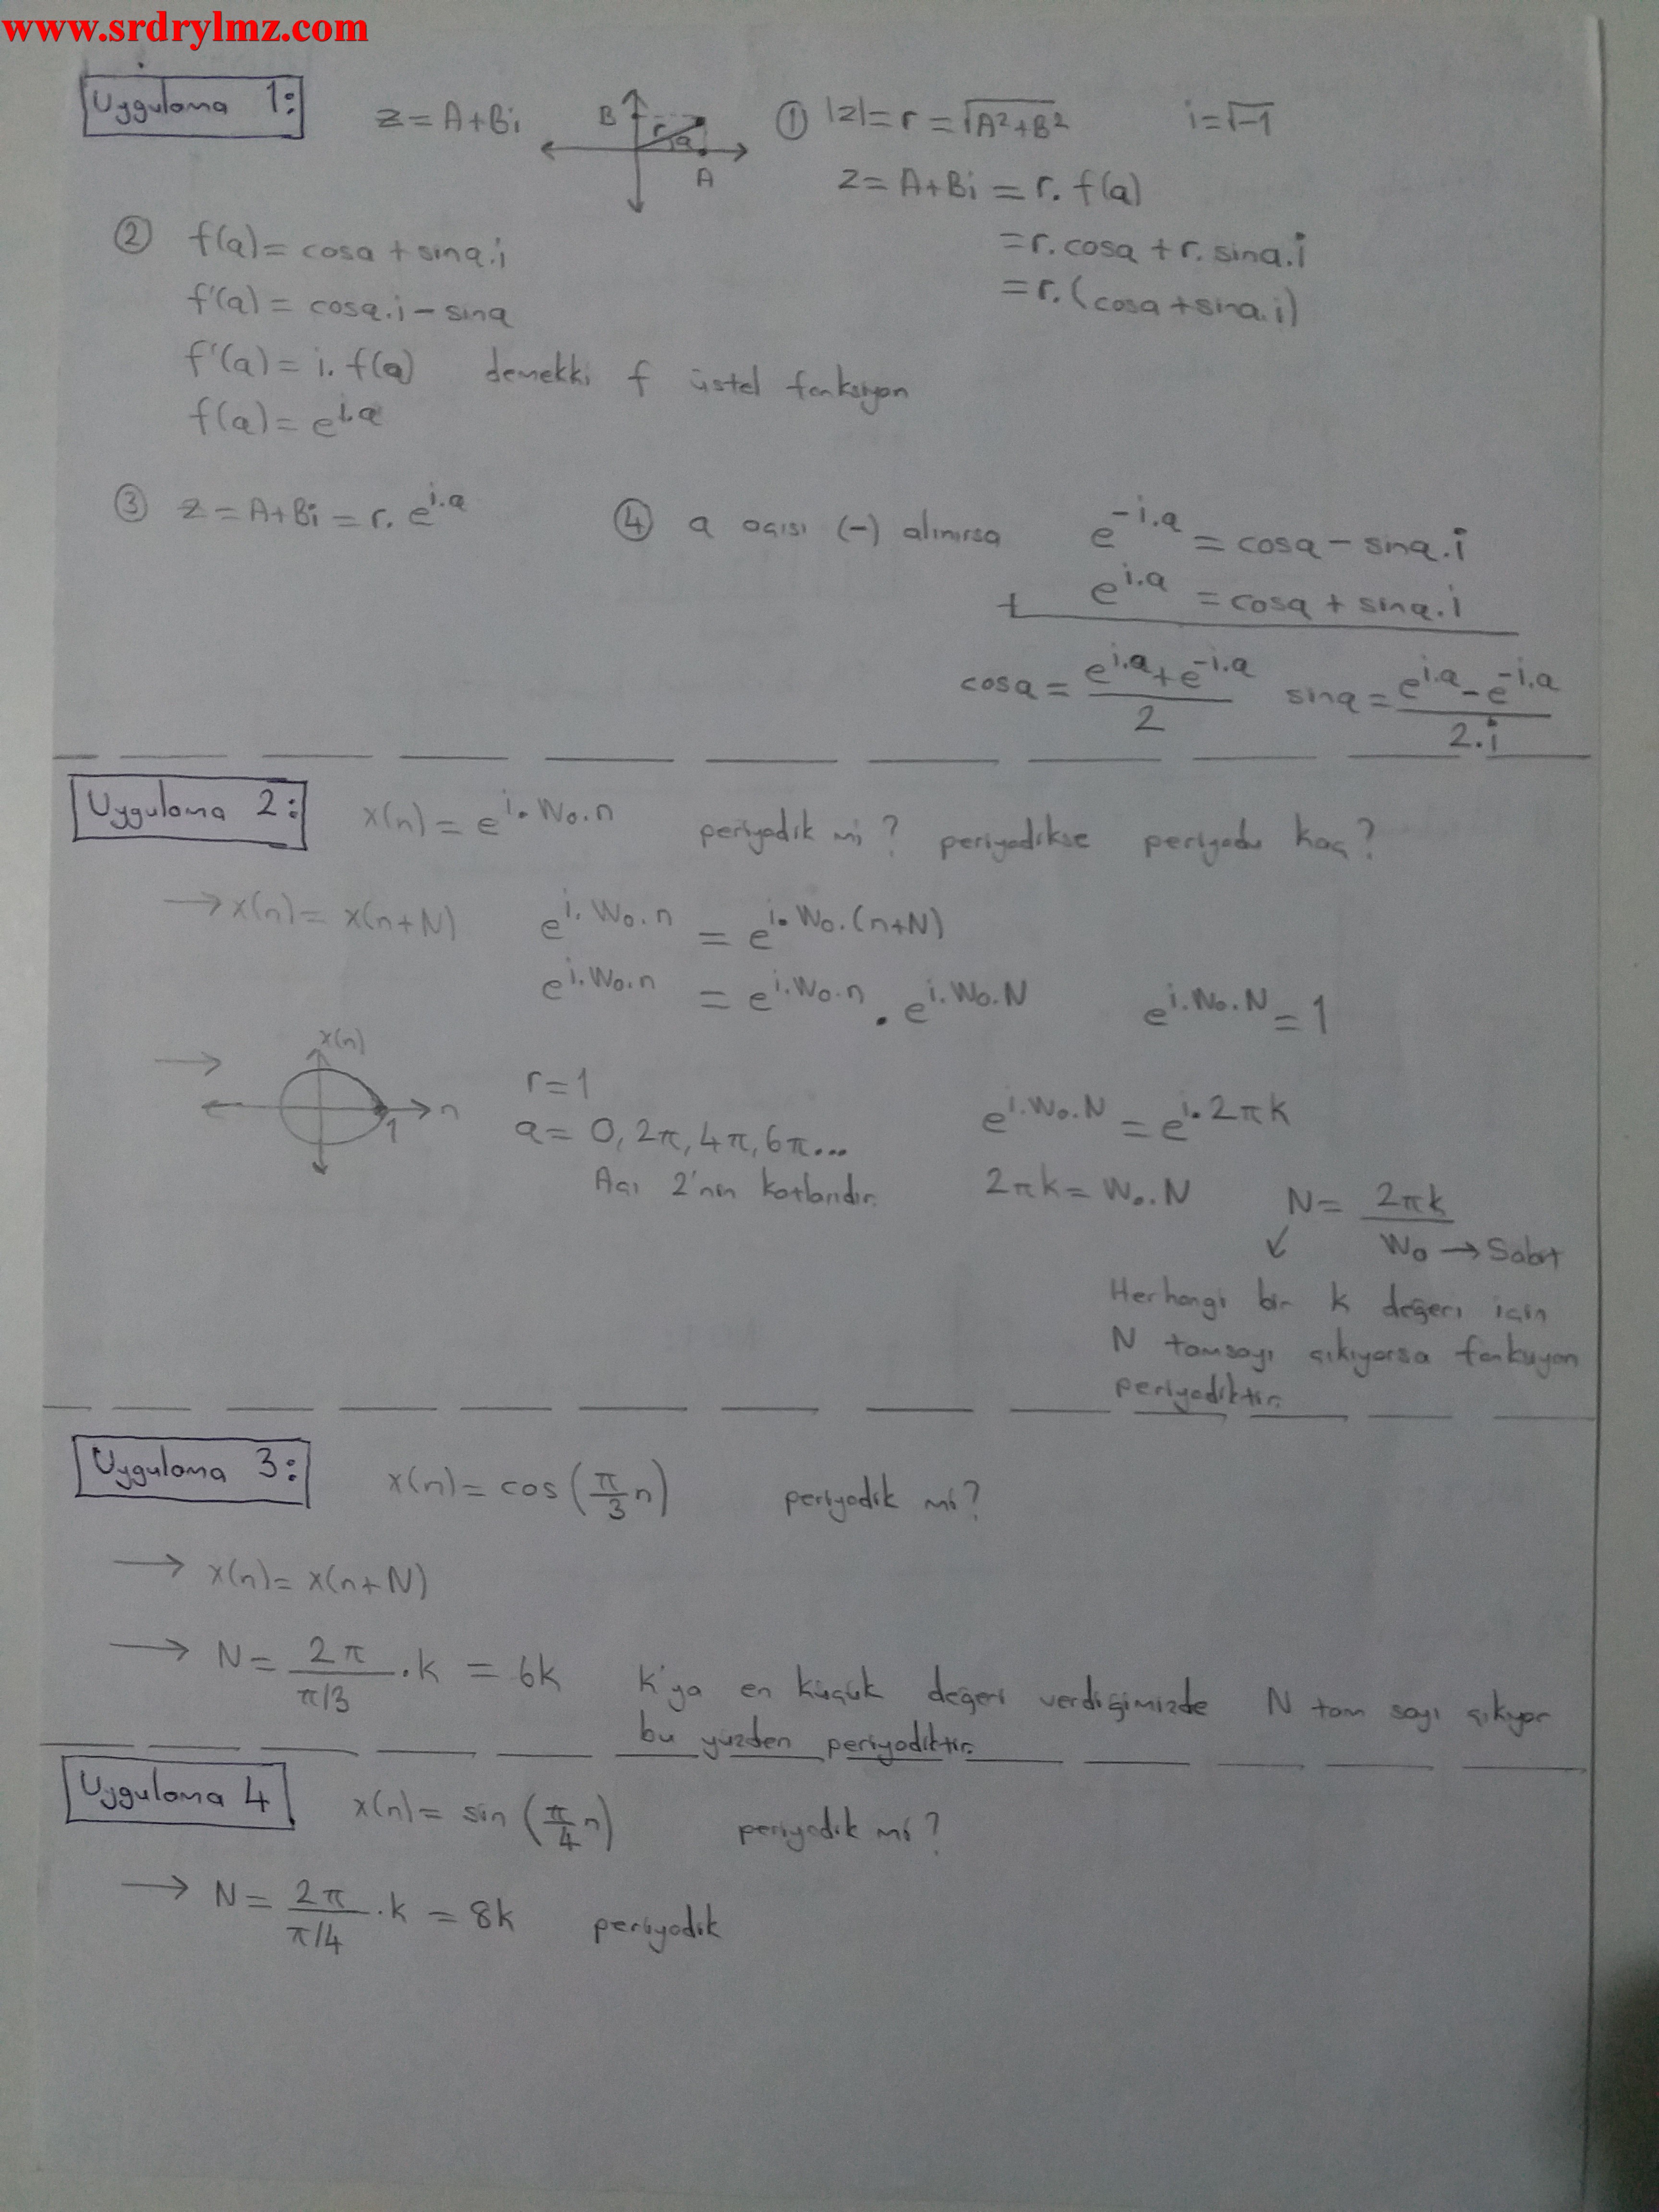 www.srdrylmz.com
Uygulama 1:
z = A+Bi
B
r
a
A
① |z| = r = √(A²+B²)
i = √-1
z = A+Bi = r. f(a)
= r. cosa + r. sina.i
= r. (cosa + sina.i)
② f(a) = cosa + sina.i
f'(a) = cosa.i - sina
f'(a) = i. f(a) demekki f üstel fonksiyon
f(a) = e^(i.a)
③ z = A+Bi = r. e^(i.a)
④ a açısı (-) alınırsa
e^(-i.a) = cosa - sina.i
+ e^(i.a) = cosa + sina.i
cosa = (e^(i.a) + e^(-i.a))/2
sina = (e^(i.a) - e^(-i.a))/2.i
Uygulama 2:
x(n) = e^(i.W₀.n) periyodik mi? periyodikse periyodu kaç?
→ x(n) = x(n+N)
e^(i.W₀.n) = e^(i.W₀.(n+N))
e^(i.W₀.n) = e^(i.W₀.n) . e^(i.W₀.N)
e^(i.W₀.N) = 1
→
x(n)
n
1
r = 1
a = 0, 2π, 4π, 6π...
Açı 2'nin katlarıdır.
e^(i.W₀.N) = e^(i.2πk)
2πk = W₀.N
N = 2πk/W₀ → Sabit
↙
Herhangi bir k değeri için
N tamsayı çıkıyorsa fonksiyon
periyodiktir.
Uygulama 3:
x(n) = cos(π/3 n) periyodik mi?
→ x(n) = x(n+N)
→ N = 2π/(π/3) .k = 6k
k'ya en küçük değeri verdiğimizde N tam sayı çıkıyor
bu yüzden periyodiktir.
Uygulama 4
x(n) = sin(π/4 n) periyodik mi?
→ N = 2π/(π/4) .k = 8k periyodik